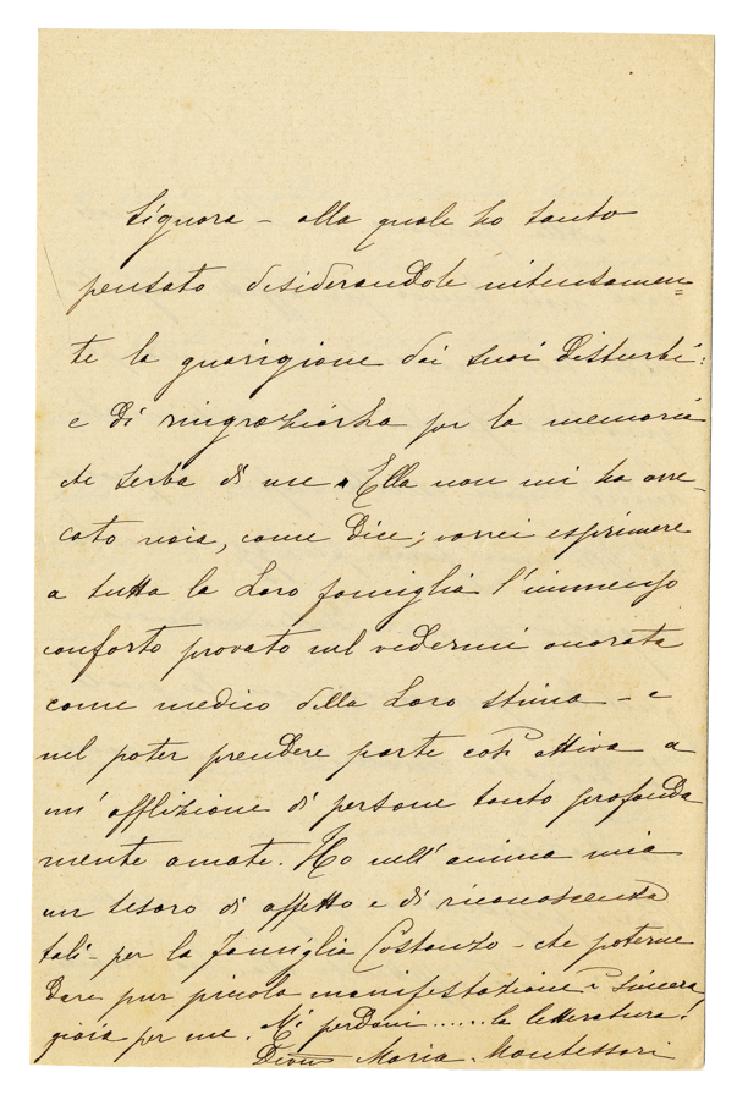 Signora – alla quale ho tanto
pensato desiderandole intensamen=
te la guarigione dai suoi disturbi:
e di ringraziarla per la memoria
che serba di me. Ella non mi ha arre-
cato noia, come dice; vorrei esprimere
a tutta la Loro famiglia l'immenso
conforto provato nel vedermi onorata
come medico della Loro stima – e
nel poter prendere parte così attiva a
un'afflizione di persone tanto profonda
mente amate. Ho nell'anima mia
un tesoro di affetto e di riconoscenza
tali – per la famiglia Costanzo – che poterne
dare pur piccola manifestazione è sincera
gioia per me. Mi perdoni ...... la letteratura!
Maria Montessori